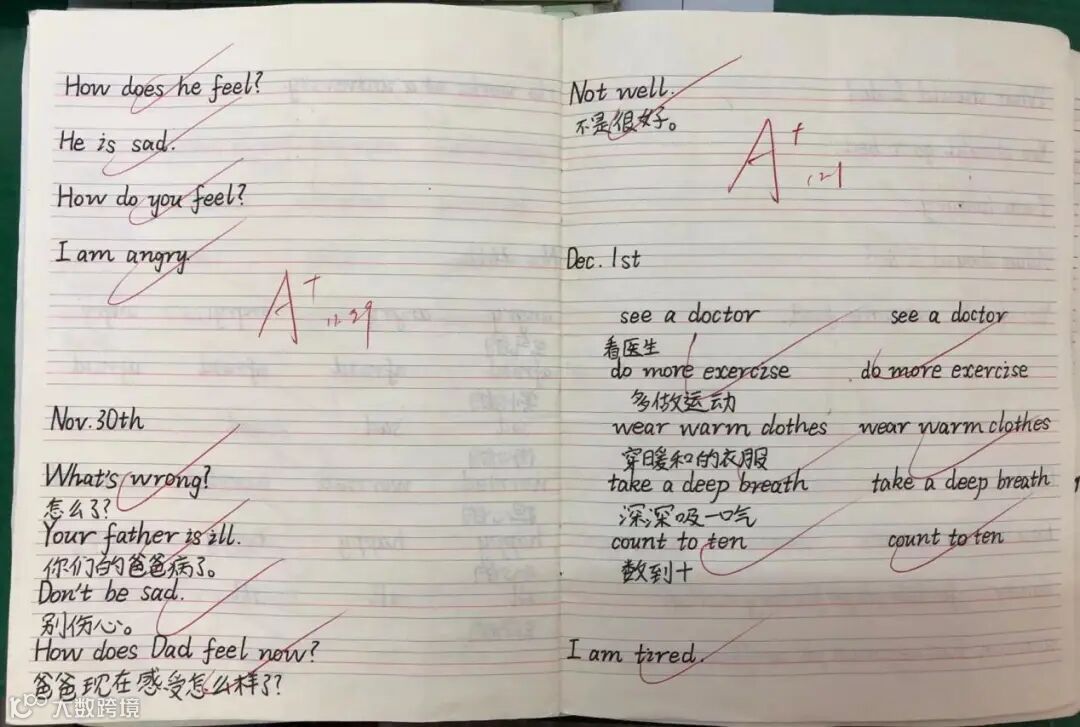 How does he feel?
He is sad.
How do you feel?
I am angry.
A+
11.29
Nov. 30th
What's wrong?
怎么了?
Your father is ill.
你们的爸爸病了。
Don't be sad.
别伤心。
How does Dad feel now?
爸爸现在感受怎么样了?
Not well.
不是很好。
A+
Dec. 1st
see a doctor see a doctor
看医生
do more exercise do more exercise
多做运动
wear warm clothes wear warm clothes
穿暖和的衣服
take a deep breath take a deep breath
深深吸一吃
count to ten count to ten
数到十
I am tired.
大数跨境